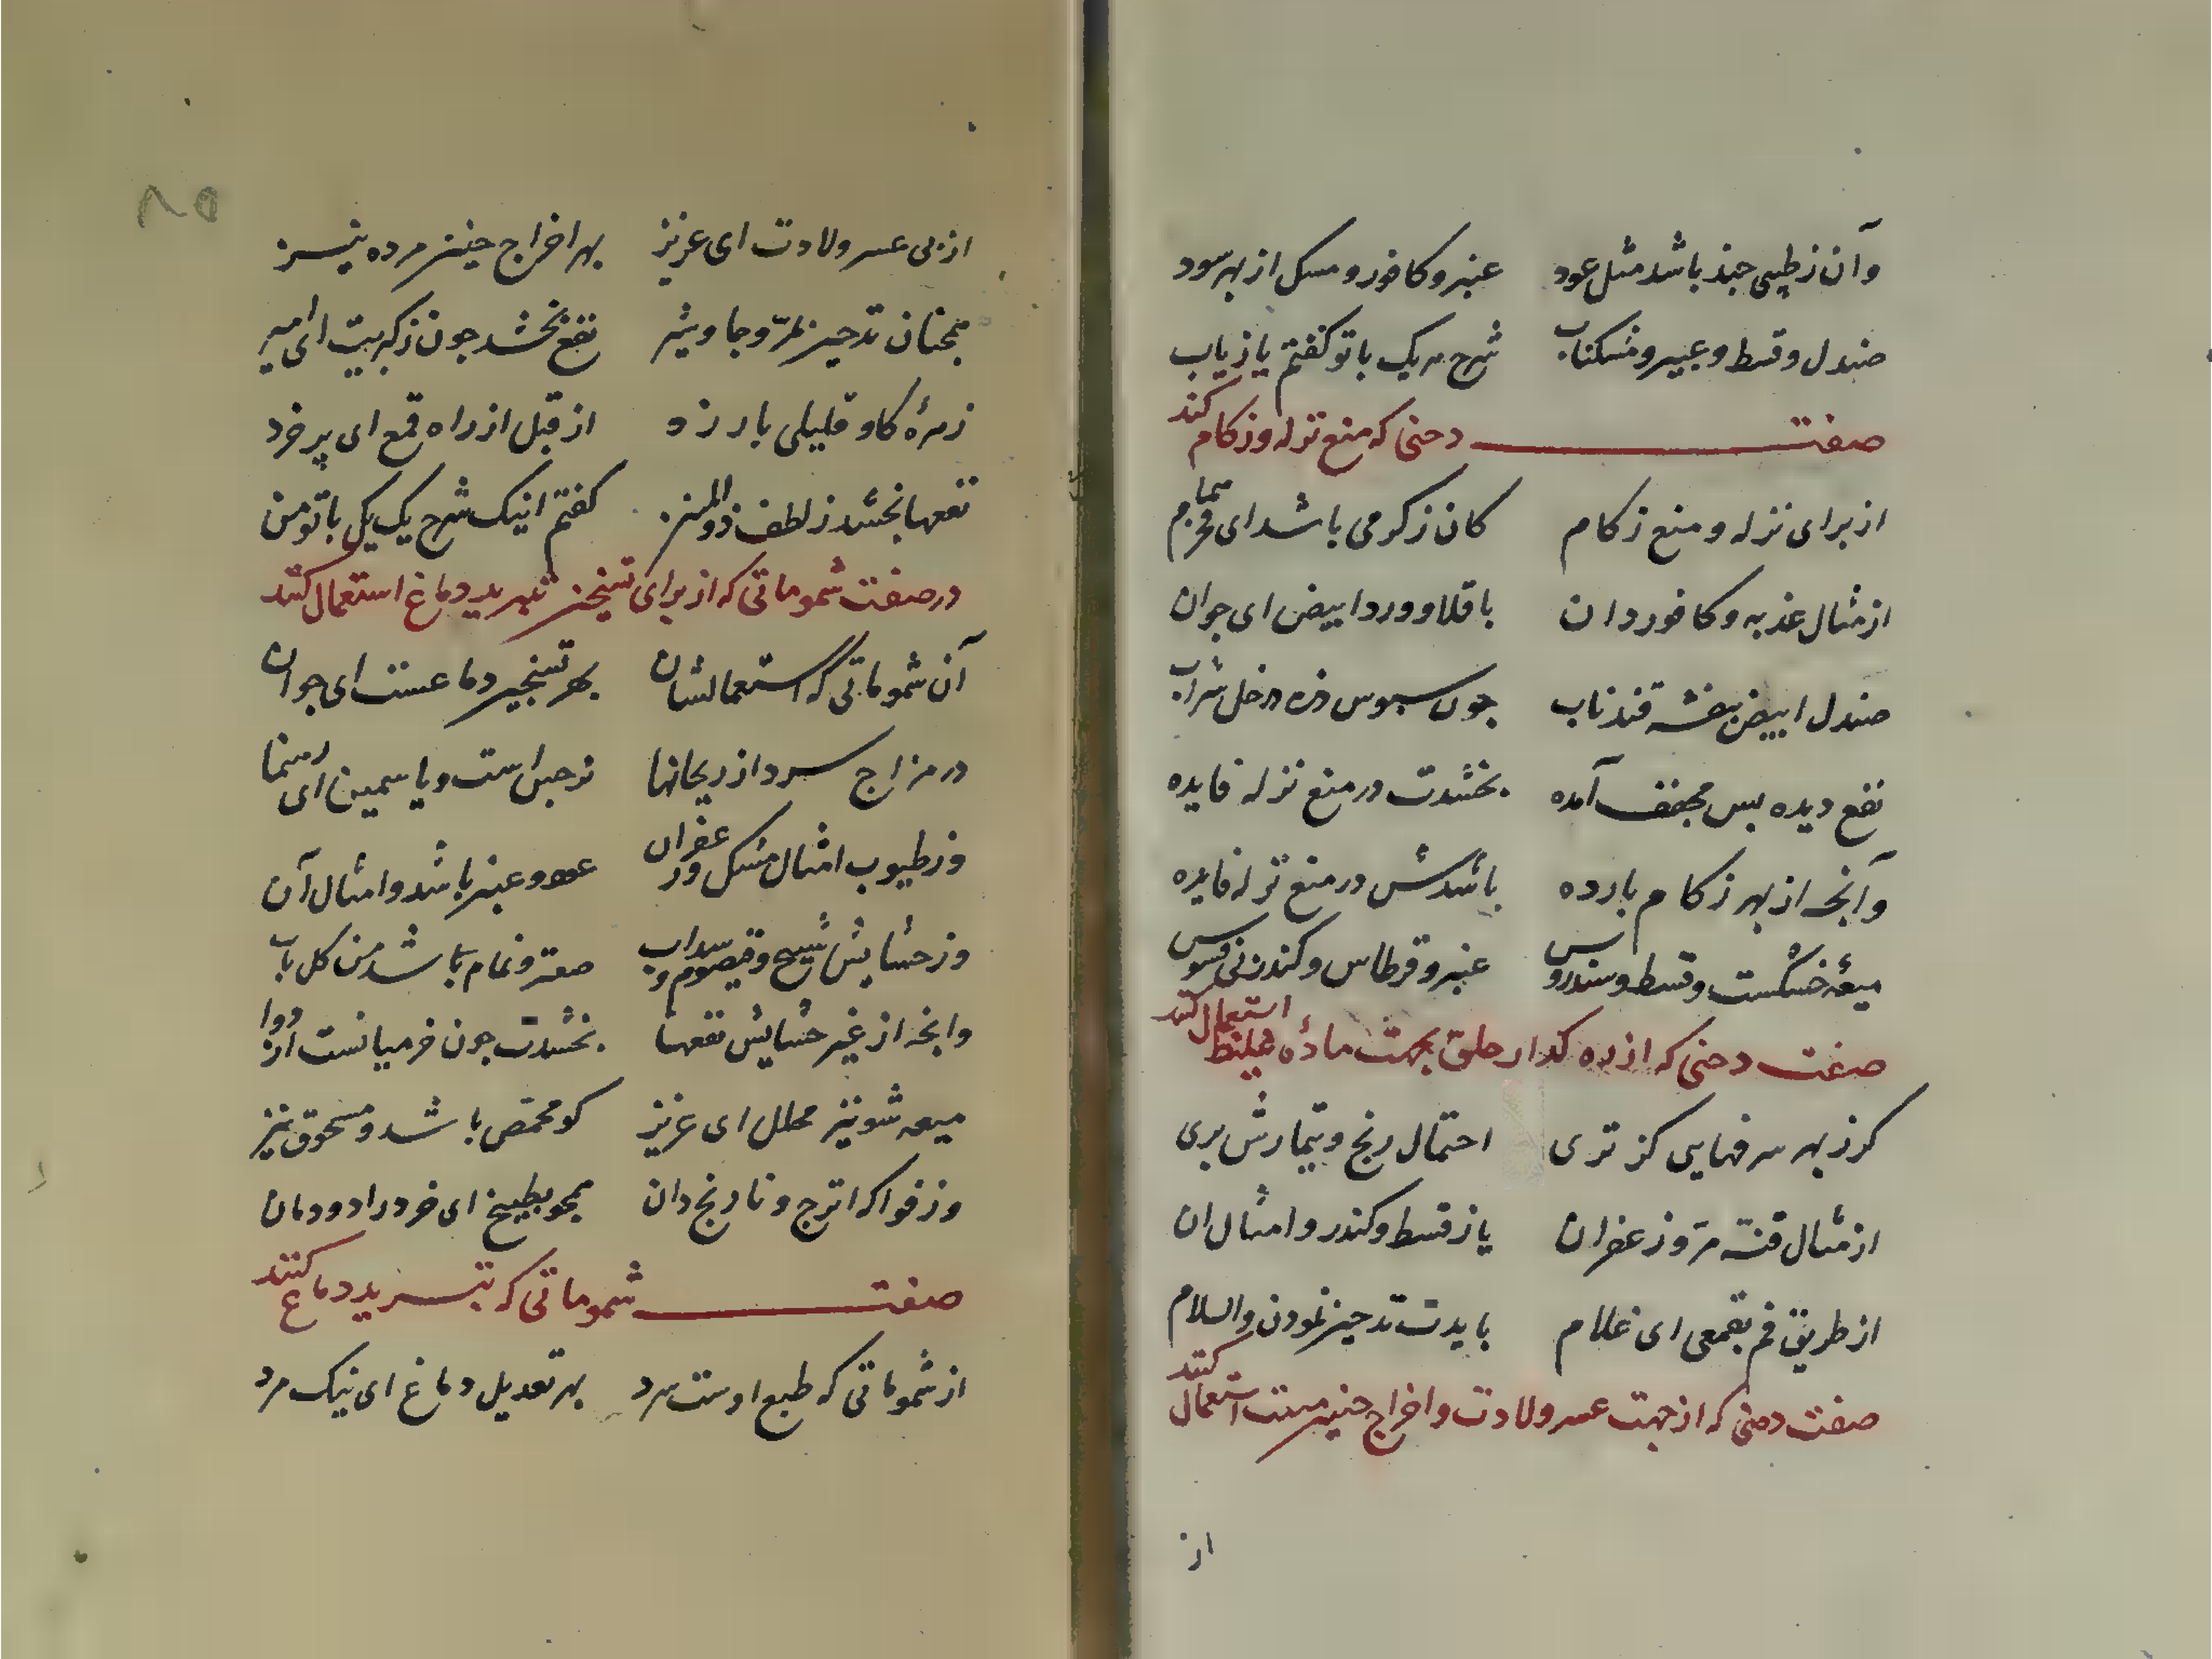 وآن ز طیبی چند باشد مثل عود عنبر و کافور و مسک از بهر سود
صندل و قسط و عبیر و مشکناب شرح هر یک با تو گفتم بازیاب
صفت دخنی که منع نزله و زکام کند
از برای نزله و منع زکام کان ز گرمی باشد ای
از مثال عذبه و کافور دان باقلا و ورد ابیض ای جوان
صندل ابیض بنفشه قند ناب چون سبوس در خل شراب
نفع دیده بس مجفف آمده بخشدت در منع نزله فایده
وآنچه از بهر زکام بارده باشدش در منع نزله فایده
میعهٔ خشکست و قسط و سندروس عنبر و قرطاس و کندر نی فسوس
صفت دخنی که از ره گذار حلق بجهت مادهٔ غلیظ استعمال کنند
گر ز بهر سرفهایی کز تری احتمال رنج و تیمارش بری
از مثال قنه مرّ و زعفران یا ز قسط و کندر و امثال ان
از طریق فم بقمعی ای غلام بایدت تدخین نمودن والسلام
صفت دخنی که از جهت عسر ولادت و اخراج جنین میت استعمال کنند
از
۸۵
از پی عسر ولادت ای عزیز بهر اخراج جنین مرده نیز
همچنان تدخین مرّ و جاوشیر نفع بخشد چون ز کبریت ای امیر
زهرهٔ کاو قلیلی بارزد از قبل از راه قمع ای پر خرد
نفعها بخشد ز لطف ذوالمنن گفتم اینک شرح یک یک با تو من
در صفت شموماتی که از برای تسخین تبرید دماغ استعمال کنند
آن شموماتی که استعمالشان بهر تسخین دماغست ای جوان
در مزاج سرد از ریحانها نرجس است و یاسمین ای رهنما
وز طیوب امثال مسک و زعفران عود و عنبر باشد و امثال آن
وز حشایش شیح و قیصوم و سداب صعتر و نمام باشد من کل باب
وانچه از غیر حشایش نفعها بخشدت چون فرمیانست از دوا
میعه شونیز محلل ای عزیز کو محمص باشد و مسحوق نیز
وز فواکه اترج و نارنج دان همچو بطیخ ای خرد را دودمان
صفت شموماتی که تبرید دماغ کنند
از شموماتی که طبع اوست سرد بهر تعدیل دماغ ای نیک مرد